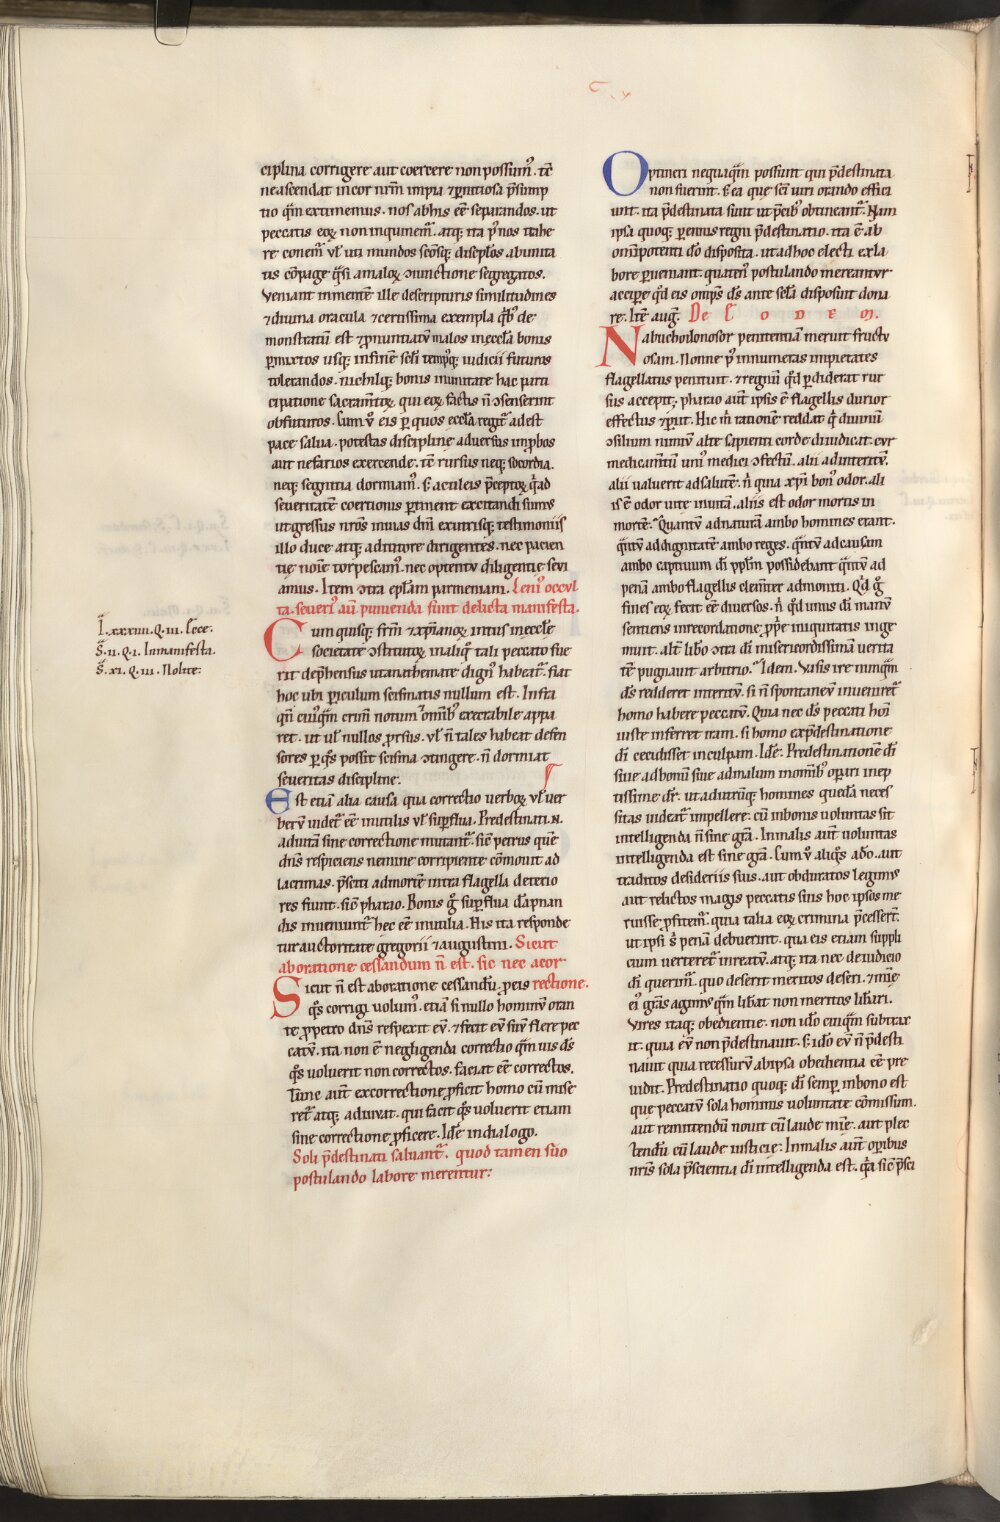 ciplina corrigere aut coercere non possum᷒. tē
ne ascendat in cor nr̄m impia ⁊ ꝑnitiosa p̄sump
tio q̄m extimemus. nos ab his eē separandos. ut
peccatis eoꝝ non inquinem᷒. atq; ita p᷒ nos trahe
re conem᷒ vl̓ uta mundos sc̄osq; discip̄los ab unita
tis cōpage q̄si a maloꝝ ꝯiunctione segregatos.
Veniant in mentem ille de scripturis similitudines
⁊ diuina oracula ⁊ certissima exempla q̄b᷒ de
monstratum est ⁊ ꝓnuntiatū malos in eccl̄a bonis
permixtos usq; in finem sc̄li tempusq; iudicii futuros
tolerandos. nichilq; bonis in unitate hac parti
cipatione sacram̄toꝝ, qui eoꝝ factis n̄ ꝯsenserint
obfuturos. Cum v̊ eis ꝑ quos eccl̄a regit᷑ adest
pace salua. potestas discipline aduersus improbos
aut nefarios exercende. tē rursus neq; socordia.
neq; segnitia dormiam᷒. s; aculeis p̄ceptoꝝ q̄ ad
seueritatē coertionis ꝑtinent excitandi sum᷒
ut gressus nr̄os in uias dn̄i ex utrisq; testimoniis
illo duce atq; adiutore dirigentes. nec pacien
tie noīe torpescam᷒. nec optentu diligentie seui
amus. Item ꝯtra ep̄lam parmeniani. Leni᷒ occul
ta. seueri᷒ aū punienda sunt delicta manifesta.
Cum quisq; fr̄m ⁊ xp̄ianoꝝ intus in eccl̄e
societate ꝯstitutoꝝ in aliq̄ tali peccato fue
rit dep̄hensus ut anathemate dign᷒ habeat᷑. fiat
hoc ubi ꝑiculum scismatis nullum est. Infra
qn̄ cui᷒q̄m crim̄ notum ⁊ om̄ib᷒ execrabile appa
ret. ut ul̓ nullos prorsus. vl̓ n̄ tales habeat defen
sores ꝑ q̄s possit scisma ꝯtingere. n̄ dormiat
seueritas discipline.
Est etiam alia causa qua correctio uerboꝝ vl̓ uer
berū uidet᷑ eē inutilis vl̓ suꝑflua. Predestinati .n.
ad uitā sine correctione mutant᷑. sic̄ petrus quē
dn̄s respiciens nemine corripiente cōmouit ad
lacrimas. p̄sciti ad mortē intra flagella deterio
res fiunt. sic̄ pharao. Bonis ḡ suꝑflua dāpnan
dis inueniunt᷑ hec eē inutilia. His ita responde
tur auctoritate gregorii ⁊ augustini. Sicut
ab oratione cessandum n̄ est. sic nec a cor
Sicut n̄ est ab oratione cessandū. ꝓ eis rectione.
q̄s corrigi volum᷒. etiā si nullo hominū oran
te ꝓ petro dn̄s respexit eū. ⁊ fecit eū suū flere pec
catū. ita non ē negligenda correctio q̄muis d̄s
q̄s voluerit non correctos. faciat eē correctos.
Tunc aut̄ ex correctione ꝓficit homo cū mise
ret᷑ atq; adiuuat. qui facit q̄s voluerit etiam
sine correctione ꝓficere. Idē in dialogo.
Soli p̄destinati saluant᷑. quod tamen suo
postulando labore merentur:
Ī. xxiiii. Q. iii. Cece.
S̄. ii. Q. i. In manifesta.
S̄. xi. Q. iii. Nolite:
Optineri nequaq̄m possunt qui p̄destinata
non fuerint. s; ea que sc̄i uiri orando effici
unt. ita p̄destinata sunt ut p̄cib᷒ obtineant᷑. Nam
ipsa quoq; ꝑennis regni p̄destinatio. ita ē ab
om̄ipotenti dō disposita. ut ad hoc electi ex la
bore ꝑueniant. quaten᷒ postulando mereantur
accipe q̄d eis omps d̄s ante sc̄la disposuit dona
re. Itē auḡ. De eodem.
Nabuchodonosor penitentiam meruit fructu
osam. Nonne p᷒ innumeras impietates
flagellatus penituit. ⁊ regnū q̄d ꝑdiderat rur
sus accepit; pharao aut̄ ipsis ē flagellis durior
effectus ⁊ ꝑiit. Hic m̄ rationē reddat q̄ diuinū
ꝯsilium nimiū alte sapienti corde diiudicat. cur
medicam̄tū uni᷒ medici ꝯfectū. alii ad interitū.
alii ualuerit ad salutē. n̄ quia xp̄i bon᷒ odor. ali
is ē odor uite in uitā. aliis est odor mortis in
mortē. Quantū ad naturā ambo homines erant.
q̄ntū ad dignitatē ambo reges. q̄ntū ad causam
ambo captiuum dī ppl̄m possidebant q̄ntū ad
penā ambo flagellis clem̄ter admoniti. Q̄d ḡ
fines eoꝝ fecit eē diuersos. n̄ q̄d unus dī manū
sentiens in recordatione ꝓpe iniquitatis inge
muit. alt̄ libo ꝯtra dī misericordissimā uerita
tē pugnauit arbitrio. Idem. Vasis ire nunq̄m
d̄s redderet interitū. si n̄ spontaneū inueniret᷑
homo habere peccatū. Quia nec d̄s peccati hoī
iuste inferret iram. si homo ex p̄destinatione
dī cecidisset in culpam. Idē. Predestinationem dī
siue ad bonū siue ad malum in om̄ib᷒ oꝑari inep
tissime dr̄. ut ad utrūq; homines quedā neces
sitas uideat᷑ impellere. cū in bonis voluntas sit
intelligenda n̄ sine gr̄a. In malis aut̄ voluntas
intelligenda est sine gr̄a. Cum v̊ aliq̄s a dō. aut
traditos desideriis suis. aut obduratos legimus
aut relictos magis peccatis suis hoc ipsos me
ruisse ꝓfitem᷑. quia talia eoꝝ crimina p̄cesserт̄.
ut ipsi s̄ penā debuerint. qua eis etiam suppli
cium verteret᷑ in reatū. atq; ita nec de iudicio
dī querim᷑. quo deserit meritos deseri. ⁊ mīe
ei᷒ gr̄as agimus q̄m liƀat non meritos liƀari.
Vires itaq; obedientie. non idō cuiq̄m subtrax
it. quia eū non p̄destinauit. s; idō eū n̄ p̄desti
nauit quia recessurū ab ipsa obedientia eē pre
uidit. Predestinatio quoq; dī semꝑ in bono est
que peccatū sola hominis voluntate cōmissum.
aut remittendū nouit cū laude mīe. aut plec
tendū cū laude iusticie. In malis aut̄ oꝑibus
nr̄is sola p̄scientia dī intelligenda est. q̄a sic̄ p̄sci